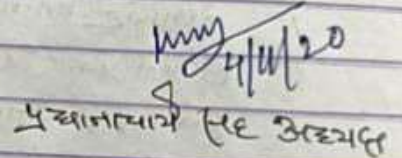 4/11/20
प्रधानाचार्य सह अध्यक्ष